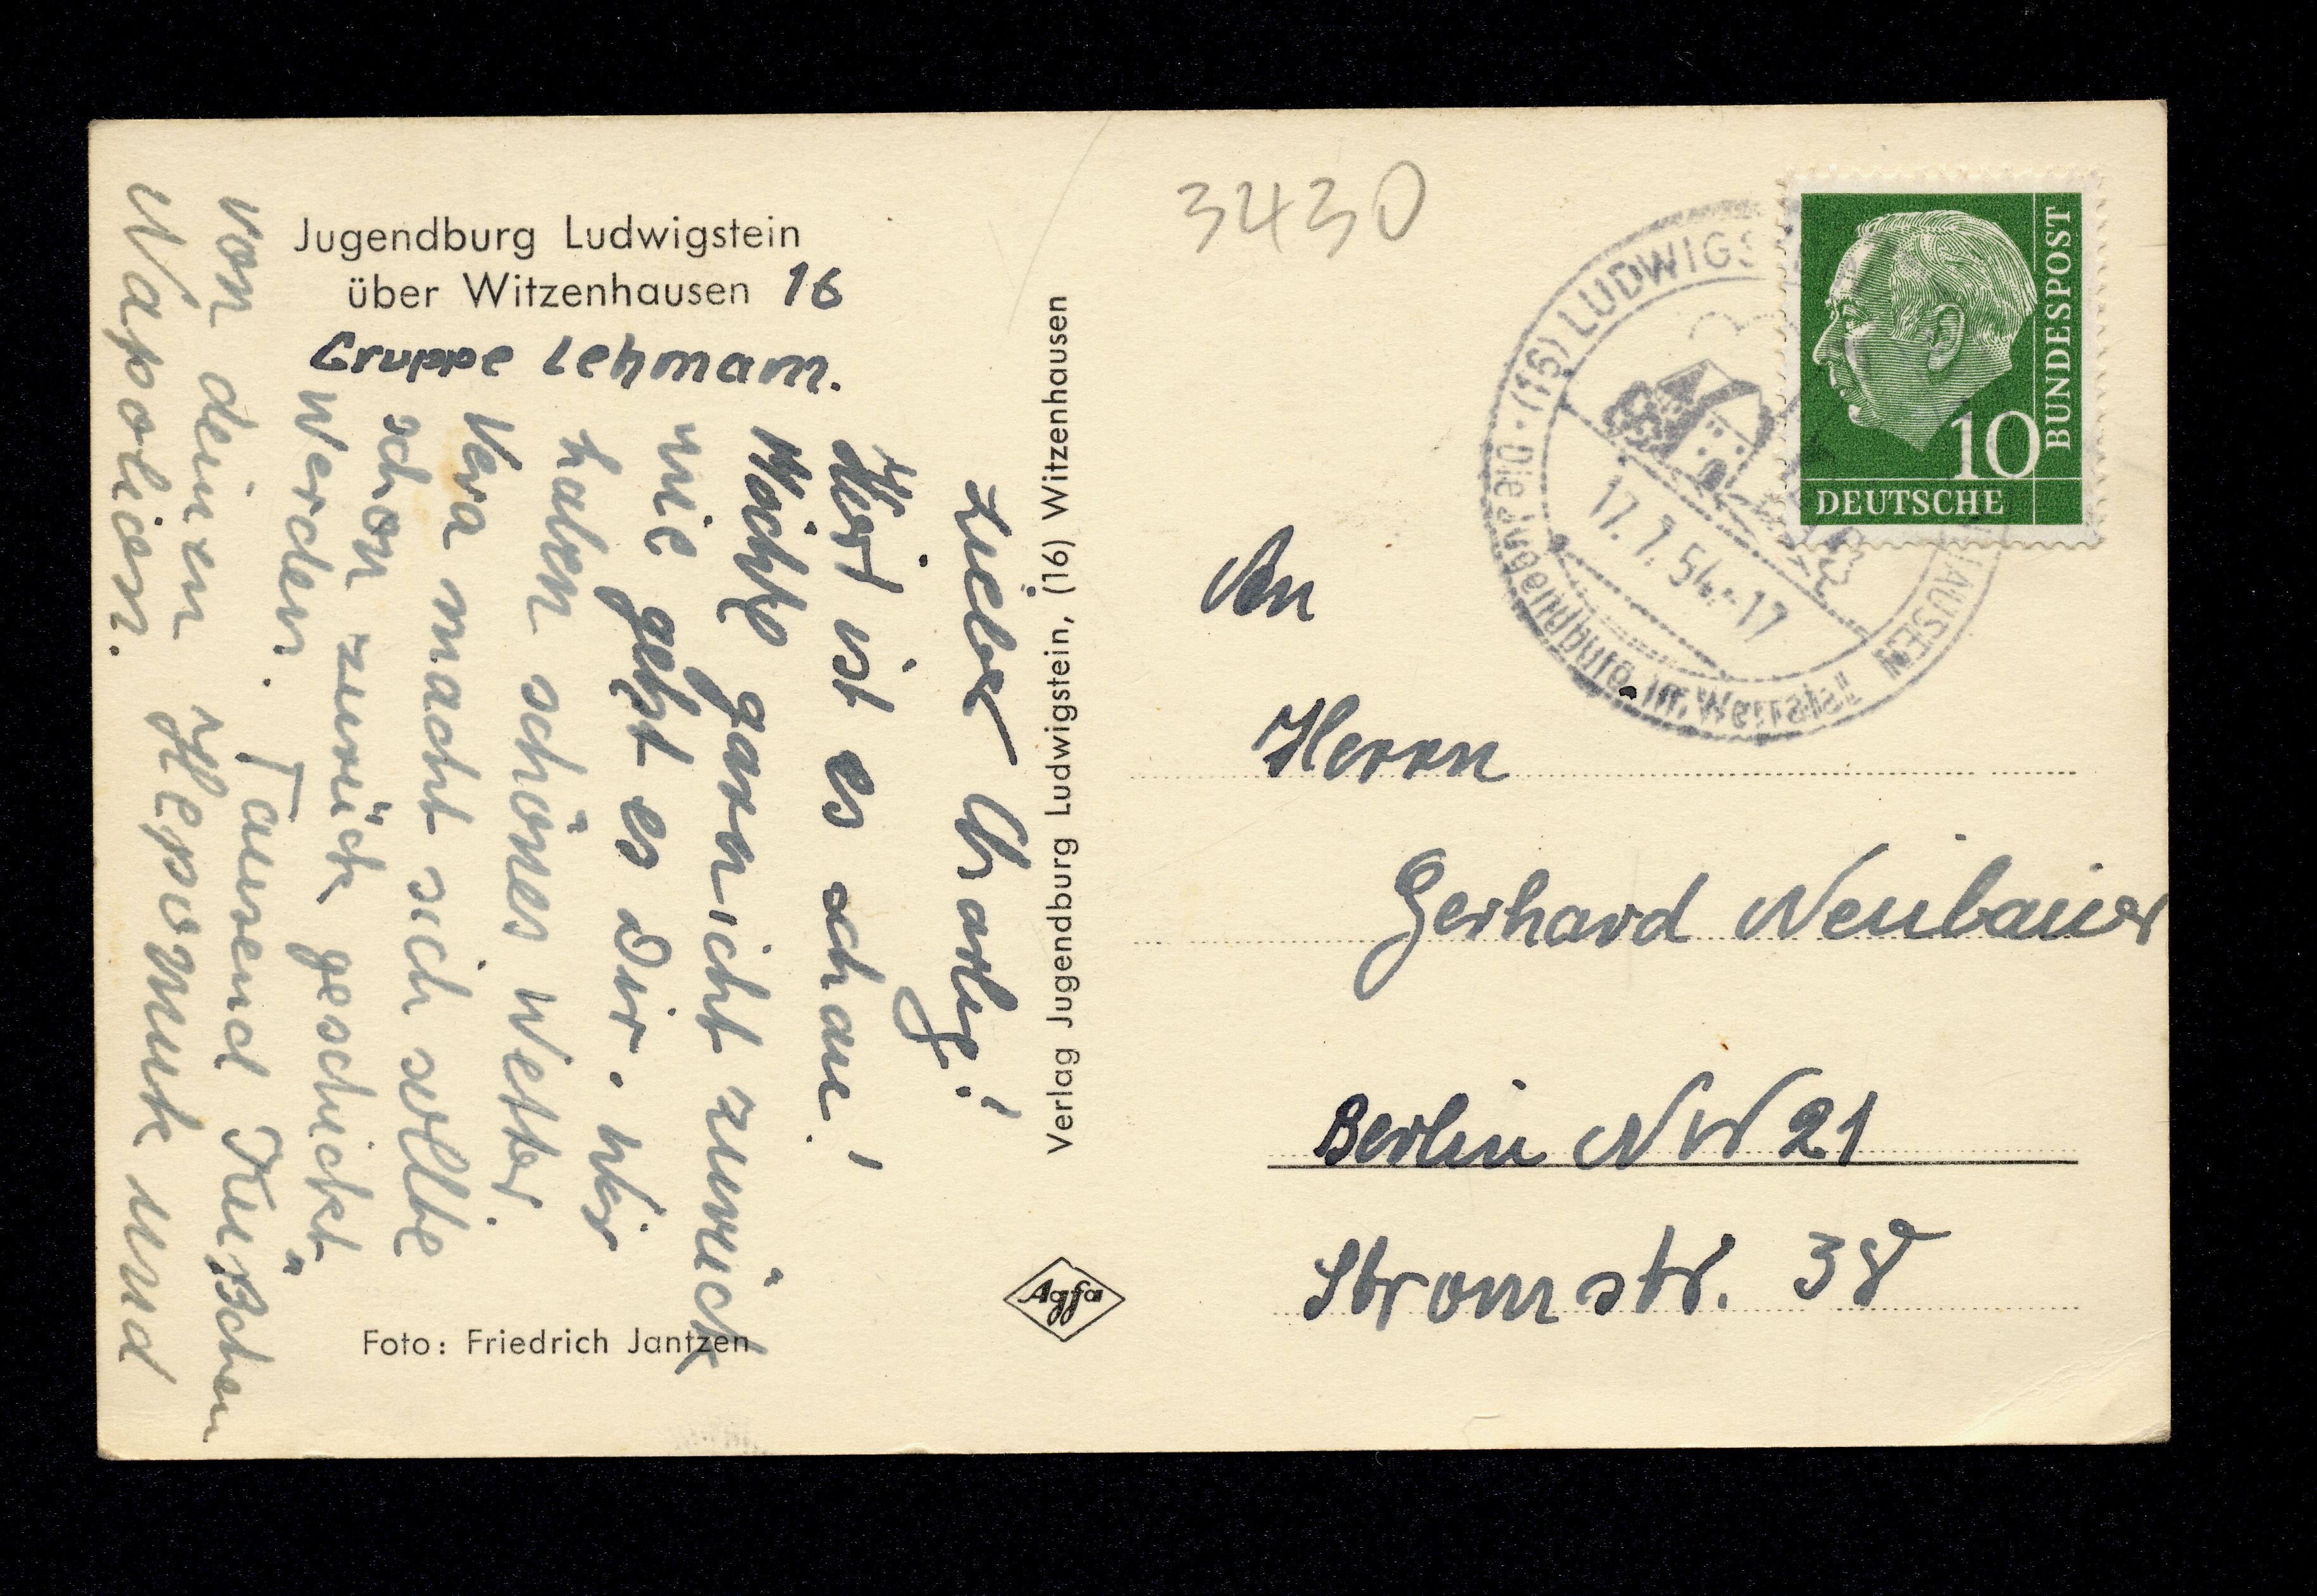 Jugendburg Ludwigstein
über Witzenhausen 16
Gruppe Lehmann.
Lieber Charley!
Hier ist es schau!
Möchte garnicht zurück
wie geht es Dir. Wir
haben schönes Wetter.
Vera macht sich sollte
schon zurück geschickt
werden. Tausend Küßchen
von deinen Heponuk und
Napolien.
Foto: Friedrich Jantzen
Verlag Jugendburg Ludwigstein, (16) Witzenhausen
Agfa
3430
(16) LUDWIGS
HAUSEN
Die Jugendburg im Werratal
17.7.54.-17
10
DEUTSCHE
BUNDESPOST
An
Herrn
Gerhard Neubauer
Berlin NW 21
Stromstr. 38